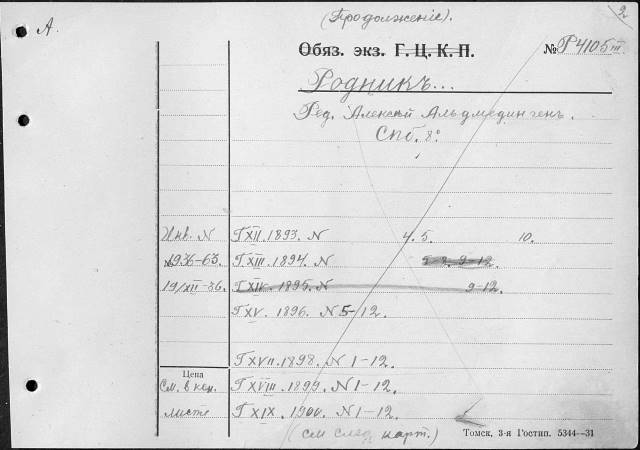 (Продолженіе).
2
А.
Обяз. экз. Г. Ц. К. П. № Р4105 III
Родникъ...
Ред. Алексѣй Альмединген.
Спб. 8°
Инв. N Г XII. 1893. N 4. 5. 10.
1936-63. Г XIII. 1894. N 9-12.
19/XII-86. Г XIV. 1895. N 9-12.
Г XV. 1896. N 5-12.
Г XVII. 1898. N 1-12.
Цена
См. в кон. Г XVIII. 1899. N 1-12.
листе Г XIX. 1900. N 1-12.
(см след карт.)
Томск, 3-я Гостип. 5344—31